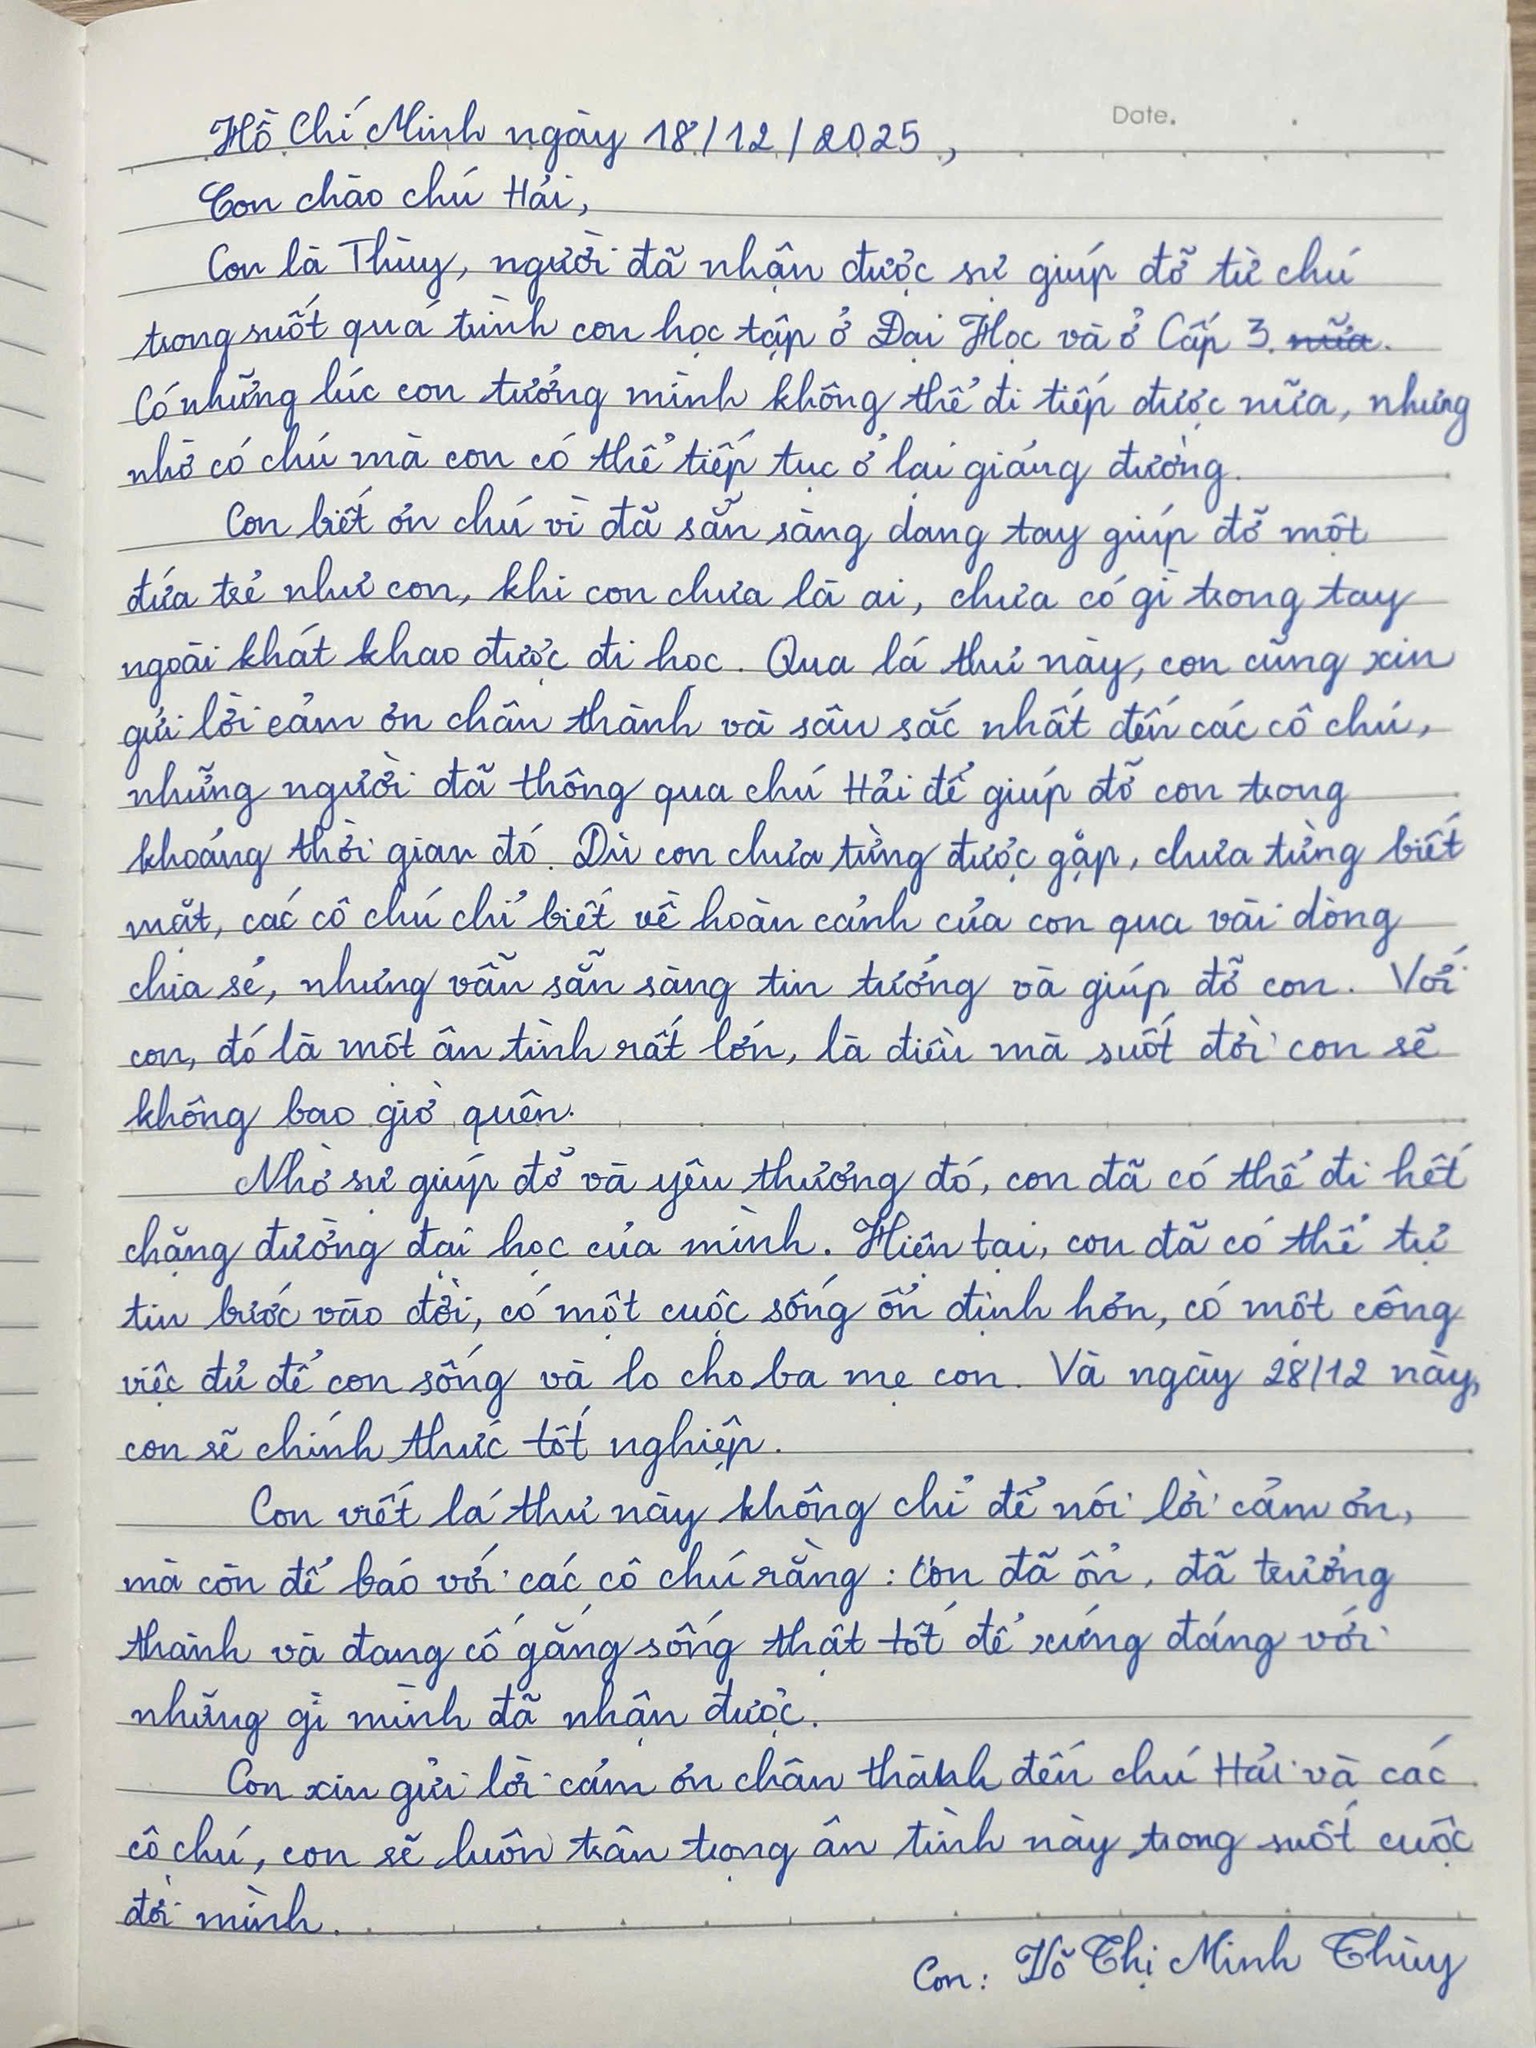 Date.
Hồ Chí Minh ngày 18/12/2025,
Con chào chú Hải,
Con là Thùy, người đã nhận được sự giúp đỡ từ chú
trong suốt quá trình con học tập ở Đại Học và ở Cấp 3. nữa.
Có những lúc con tưởng mình không thể đi tiếp được nữa, nhưng
nhờ có chú mà con có thể tiếp tục ở lại giảng đường.
Con biết ơn chú vì đã sẵn sàng dang tay giúp đỡ một
đứa trẻ như con, khi con chưa là ai, chưa có gì trong tay
ngoài khát khao được đi học. Qua lá thư này, con cũng xin
gửi lời cảm ơn chân thành và sâu sắc nhất đến các cô chú,
những người đã thông qua chú Hải để giúp đỡ con trong
khoảng thời gian đó. Dù con chưa từng được gặp, chưa từng biết
mặt, các cô chú chỉ biết về hoàn cảnh của con qua vài dòng
chia sẻ, nhưng vẫn sẵn sàng tin tưởng và giúp đỡ con. Với
con, đó là một ân tình rất lớn, là điều mà suốt đời con sẽ
không bao giờ quên.
Nhờ sự giúp đỡ và yêu thương đó, con đã có thể đi hết
chặng đường đại học của mình. Hiện tại, con đã có thể tự
tin bước vào đời, có một cuộc sống ổn định hơn, có một công
việc đủ để con sống và lo cho ba mẹ con. Và ngày 28/12 này,
con sẽ chính thức tốt nghiệp.
Con viết lá thư này không chỉ để nói lời cảm ơn,
mà còn để báo với các cô chú rằng: Con đã ổn, đã trưởng
thành và đang cố gắng sống thật tốt để xứng đáng với
những gì mình đã nhận được.
Con xin gửi lời cảm ơn chân thành đến chú Hải và các
cô chú, con sẽ luôn trân trọng ân tình này trong suốt cuộc
đời mình.
Con: Võ Thị Minh Thùy